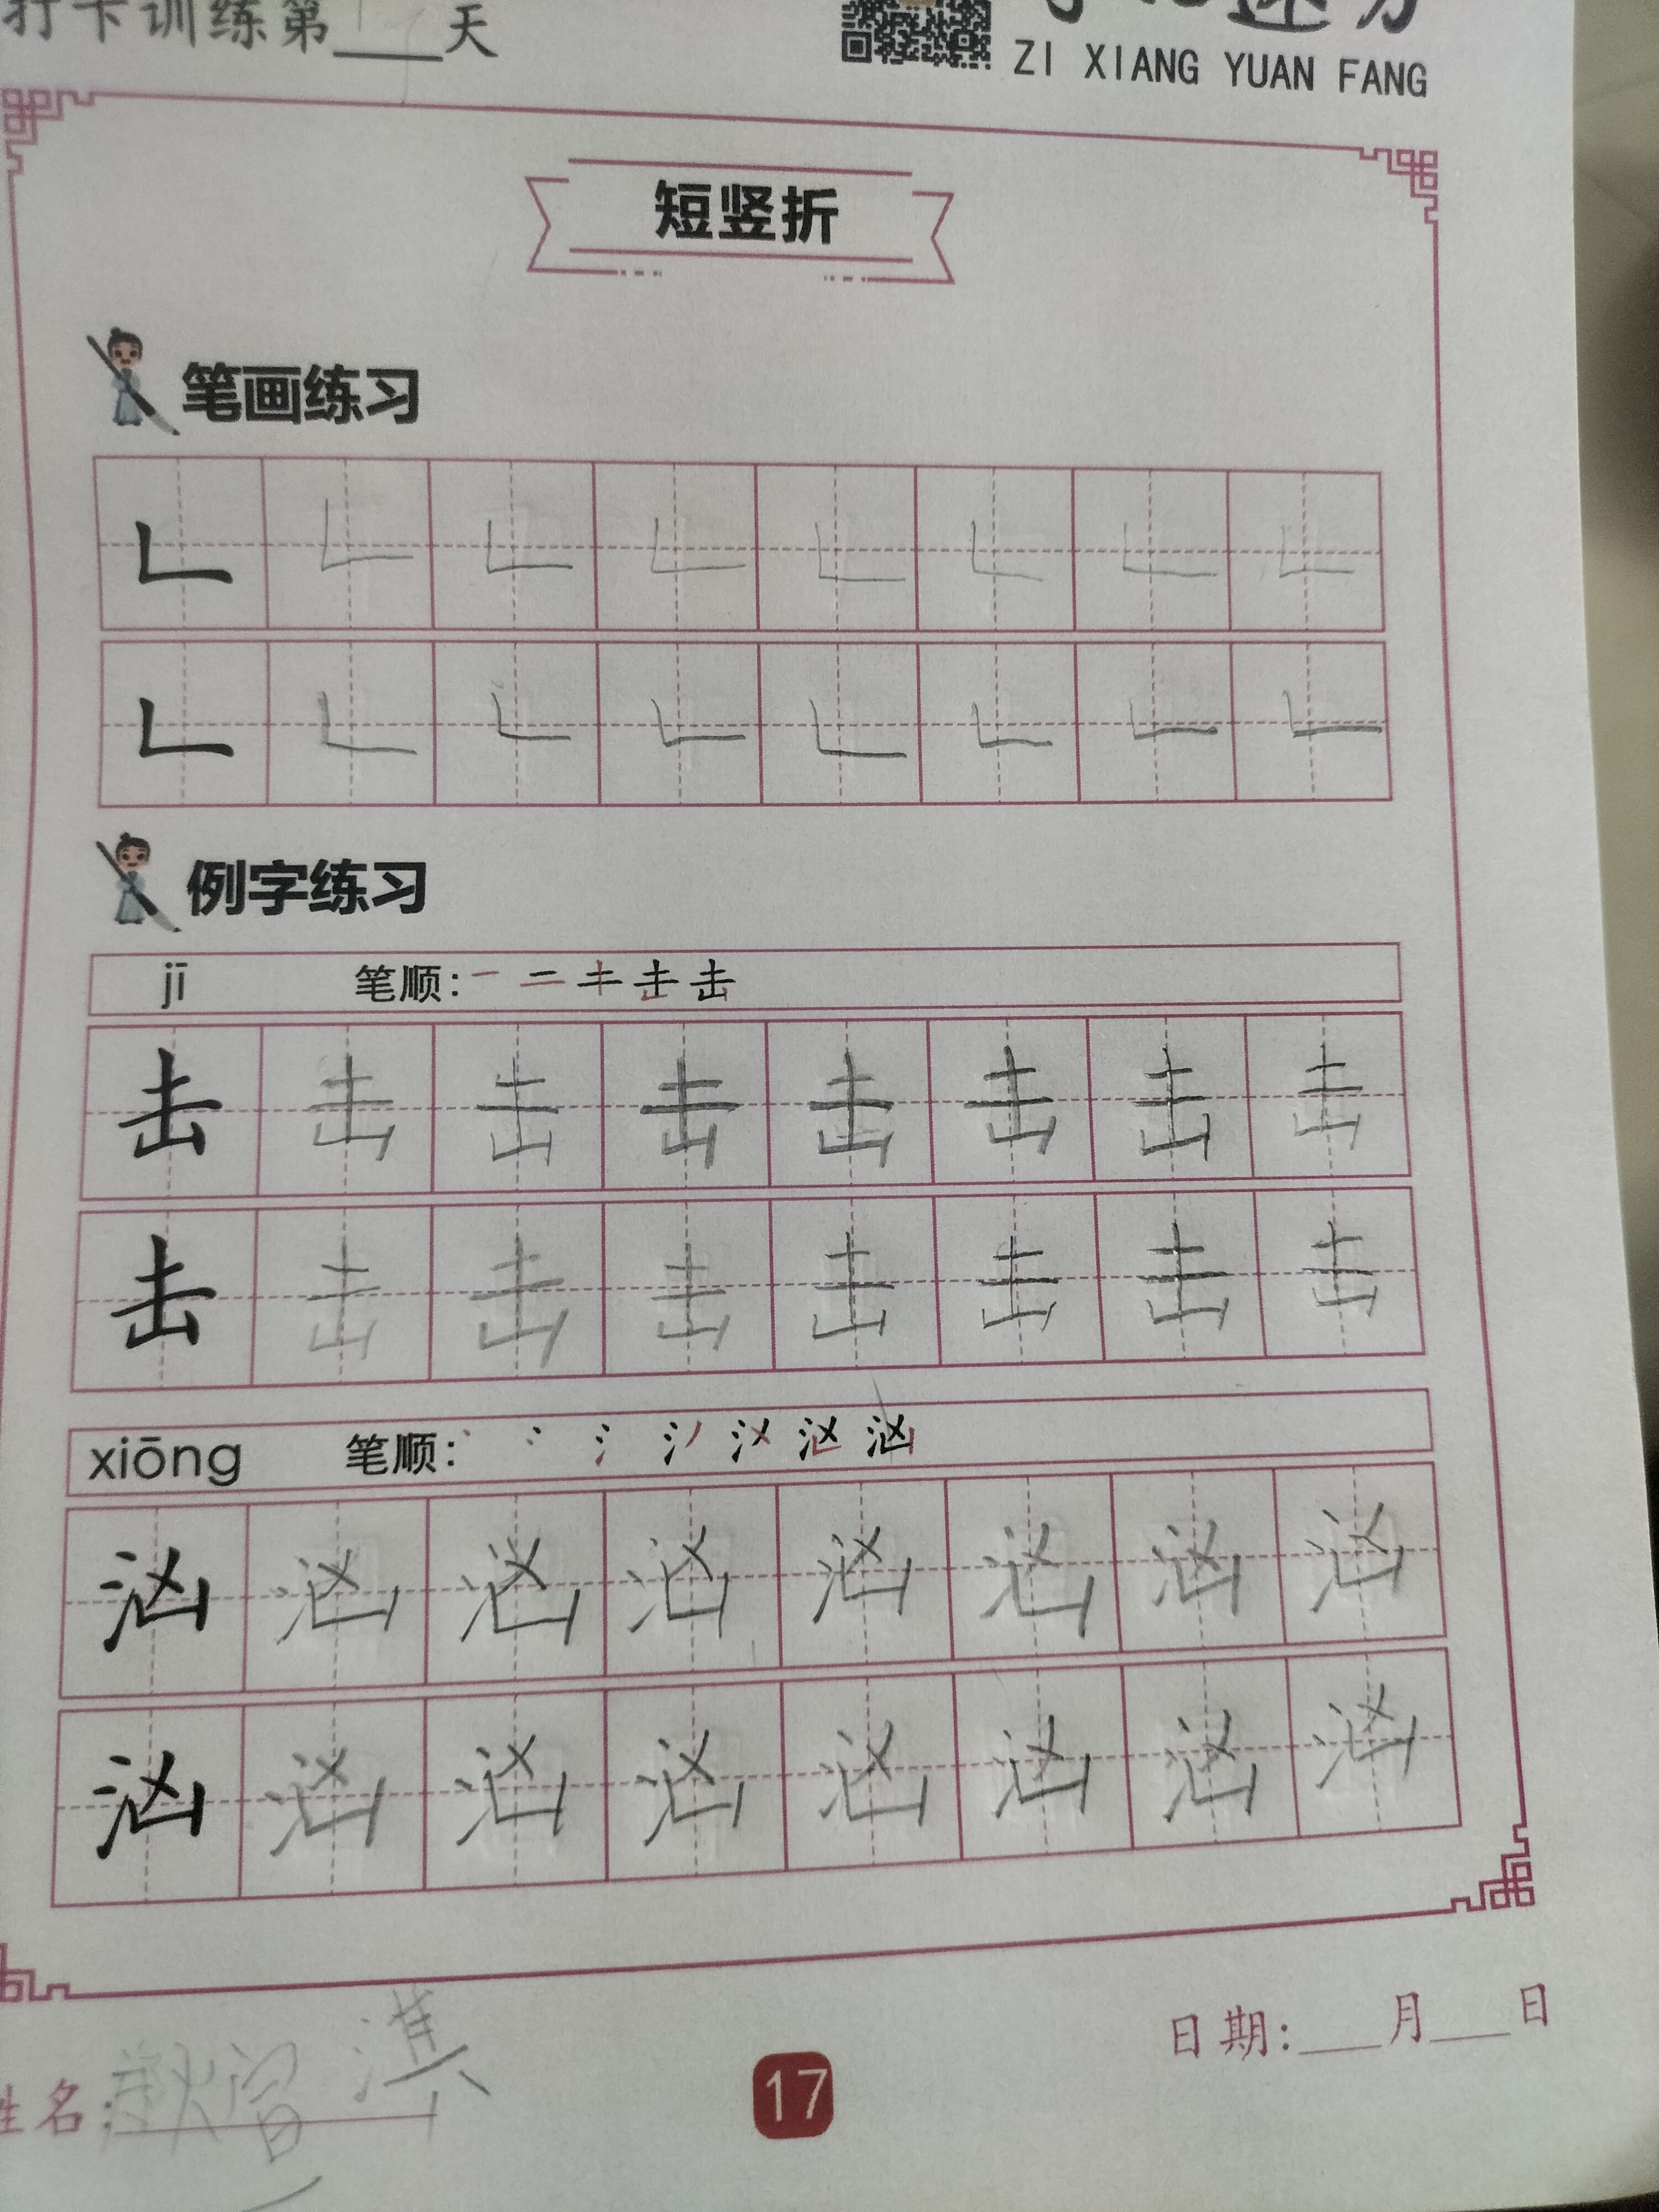 打卡训练第___天
ZI XIANG YUAN FANG
短竖折
笔画练习
例字练习
jī 笔顺:
击 击 击 击 击 击 击 击
击 击 击 击 击 击 击 击
xiōng 笔顺:
汹 汹 汹 汹 汹 汹 汹 汹
汹 汹 汹 汹 汹 汹 汹 汹
姓名: 淇
17
日期:___月___日